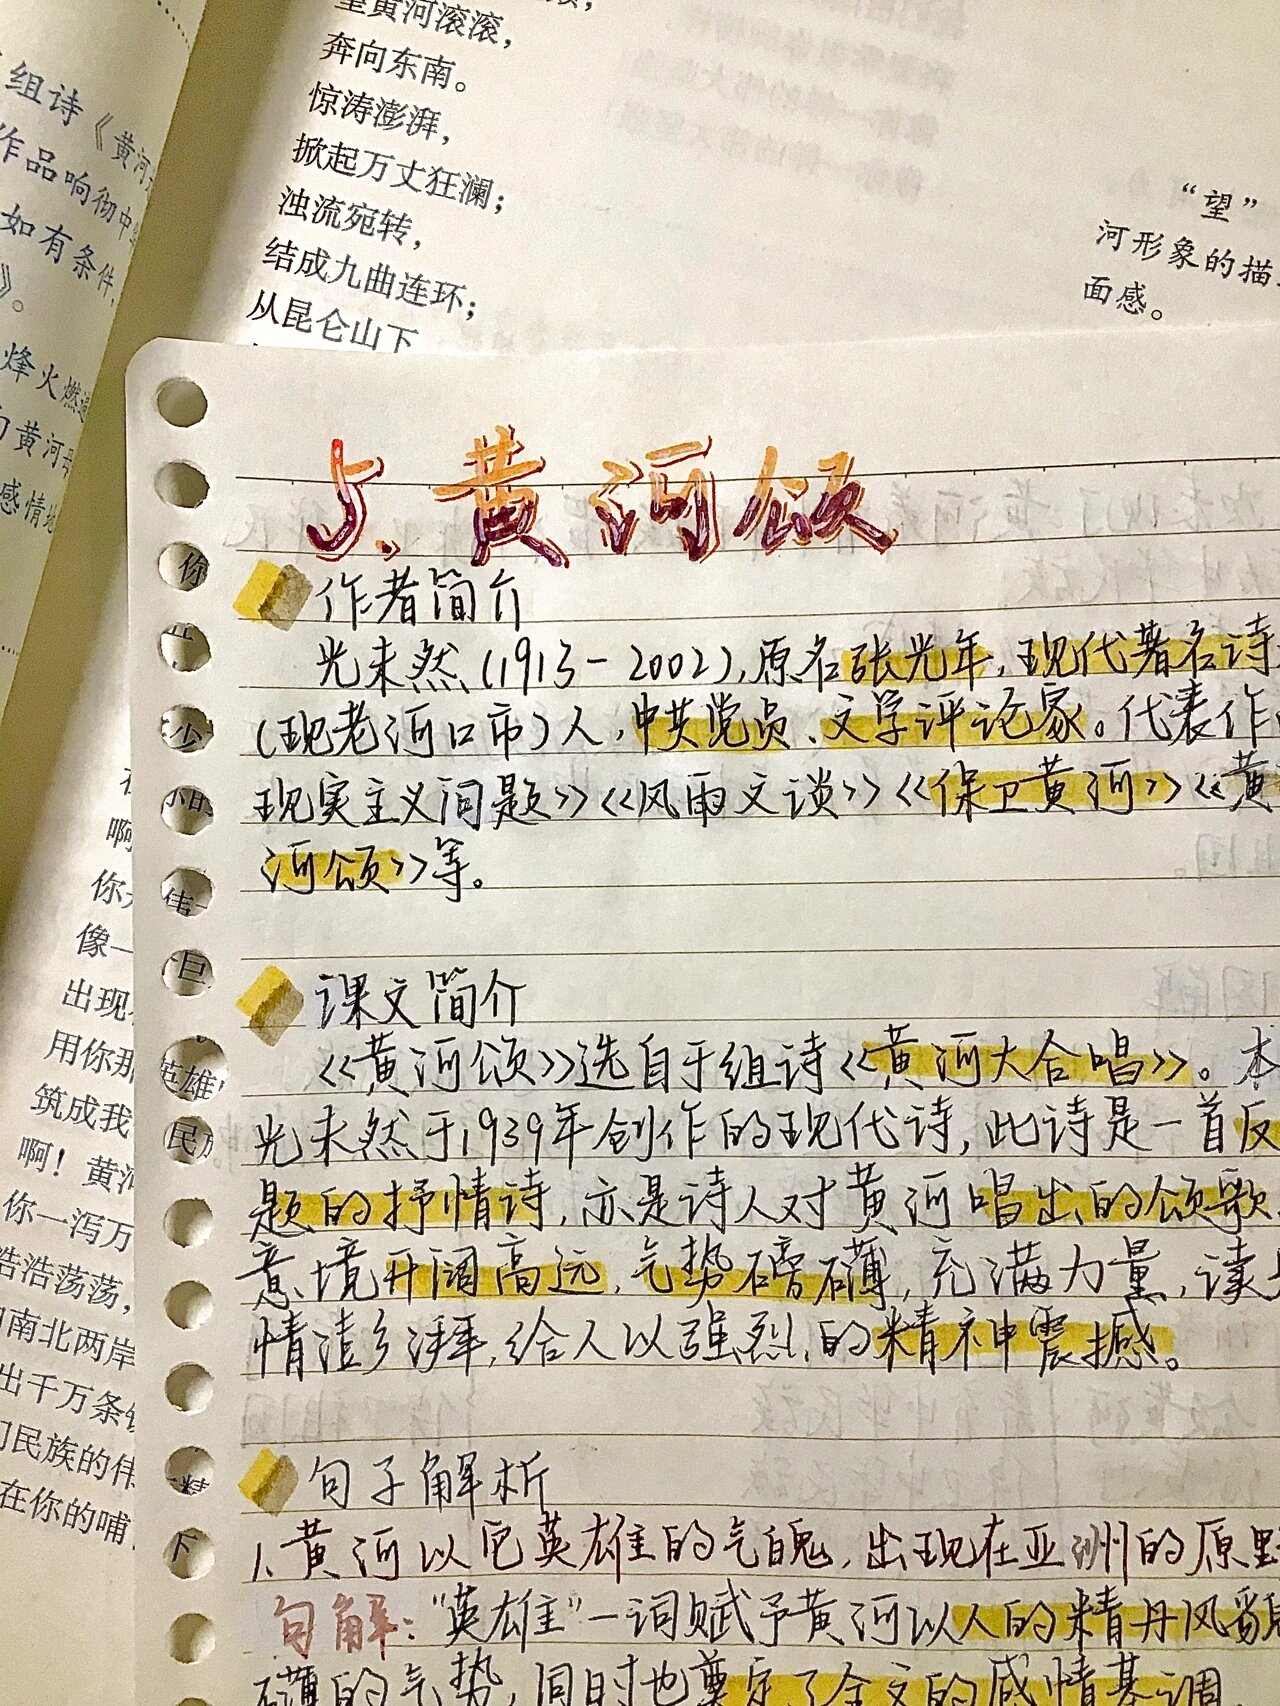 望黄河滚滚，
奔向东南。
惊涛澎湃，
掀起万丈狂澜；
浊流宛转，
结成九曲连环；
从昆仑山下
组诗《黄河
作品响彻中
如有条件，
》。
烽火燃
黄河母
感情
“望”
河形象的描
面感。
5.黄河颂
作者简介
光未然(1913-2002),原名张光年,现代著名诗
(现老河口市)人,中共党员、文学评论家。代表作
现实主义问题》《风雨文谈》《保卫黄河》《黄
河颂》等。
课文简介
《黄河颂》选自于组诗《黄河大合唱》。本
光未然于1939年创作的现代诗,此诗是一首反
题的抒情诗,亦是诗人对黄河唱出的颂歌
意境开阔高远,气势磅礴,充满力量,读
情澎湃,给人以强烈的精神震撼。
句子解析
1.黄河以它英雄的气魄,出现在亚洲的原野
句解:“英雄”一词赋予黄河以人的精神风貌
礴的气势,同时也奠定了全文的感情基调
你
少
伟
巨
英雄
民
精
下
啊
你
像一
出现
用你那
筑成我
啊！黄河
你一泻万
浩浩荡荡，
南北两岸
出千万条
们民族的伟
在你的哺